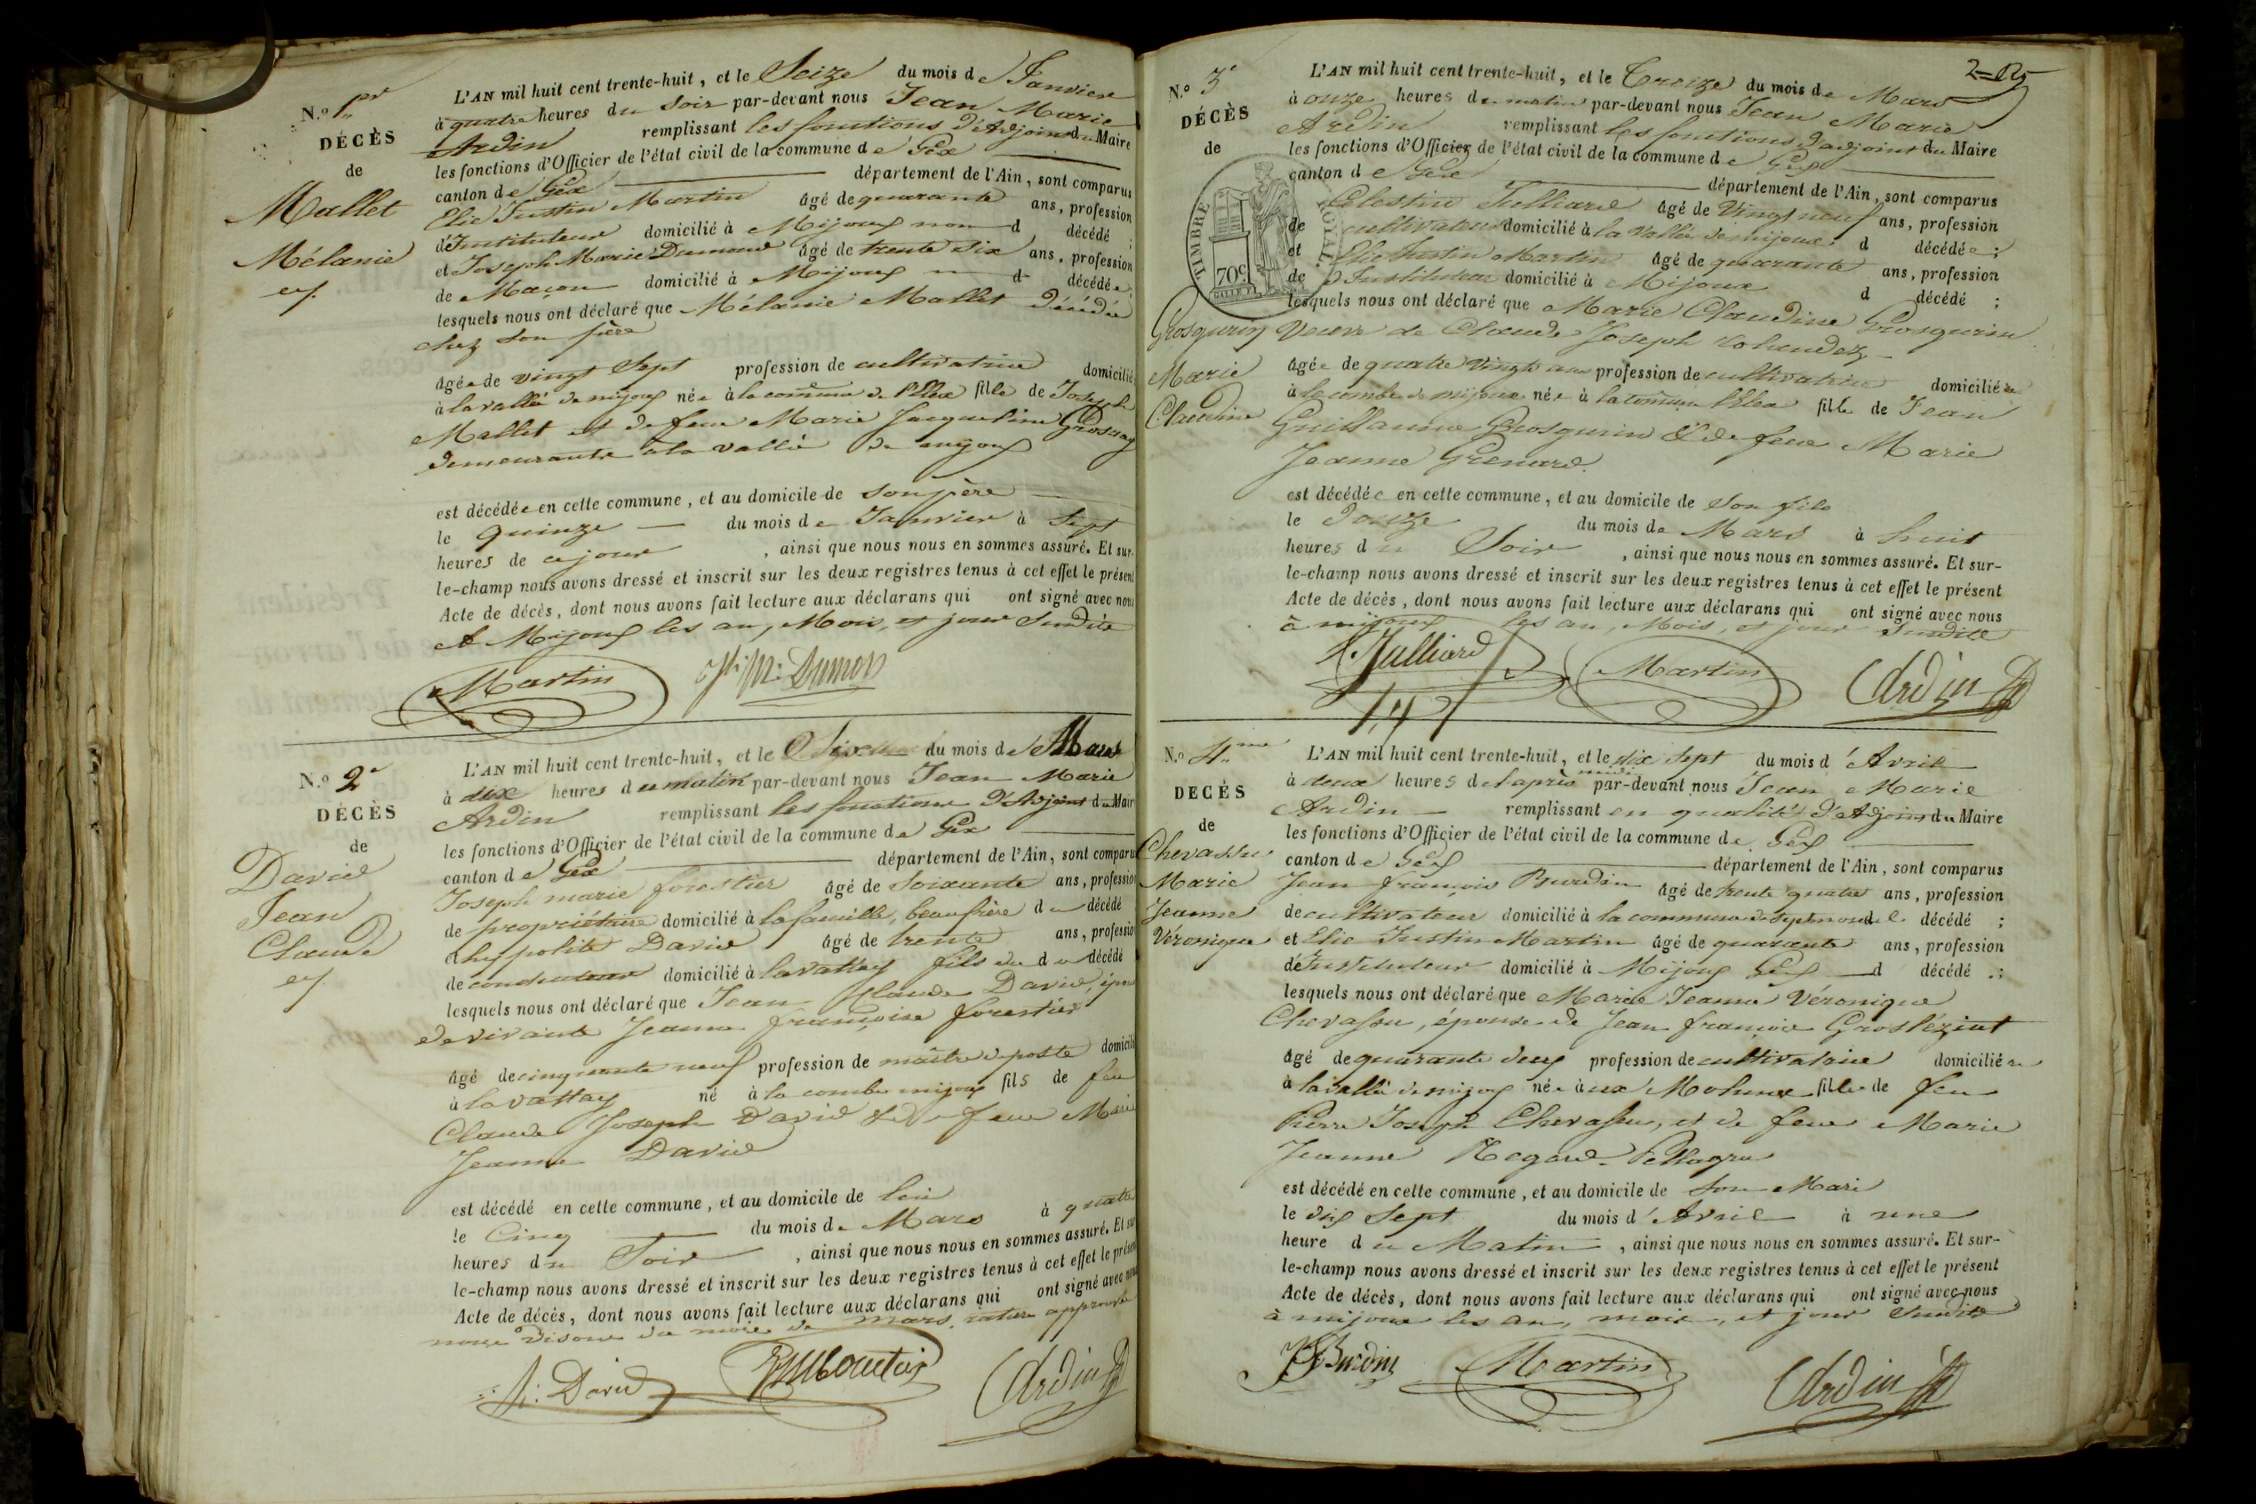 N.o 1er
DÉCÈS
de
Mallet
Mélanie
L'AN mil huit cent trente-huit, et le Seize du mois de Janvier
à quatre heures du Soir par-devant nous Jean Marie
Ardin remplissant les fonctions d'Adjoint du Maire
les fonctions d'Officier de l'état civil de la commune de Gex
canton de Gex département de l'Ain, sont comparus
Elie Justin Martin âgé de quarante ans, profession
d'Instituteur domicilié à Mijoux non d décédé ;
et Joseph Marie Dumond âgé de trente Six ans, profession
de Maçon domicilié à Mijoux d décédé
lesquels nous ont déclaré que Mélanie Mallet décédée
chez son père
âgée de vingt Sept profession de cultivatrice domicilié
à la vallée de mijoux née à la commune de fille de Joseph
Mallet et de feue Marie Jacqueline
demeurante à la vallée de mijoux
est décédée en cette commune, et au domicile de son père
le quinze du mois de Janvier à Sept
heures de ce jour , ainsi que nous nous en sommes assuré. Et sur-
le-champ nous avons dressé et inscrit sur les deux registres tenus à cet effet le présent
Acte de décès, dont nous avons fait lecture aux déclarans qui ont signé avec nous
A Mijoux les an, Mois, et jour Susdits
Martin Jh: M: Dumon
N.o 2e
DÉCÈS
de
David
Jean
Claude
L'AN mil huit cent trente-huit, et le du mois de Mars
à dix heures du matin par-devant nous Jean Marie
Ardin remplissant les fonctions d'Adjoint du Mair
les fonctions d'Officier de l'état civil de la commune de Gex
canton de Gex département de l'Ain, sont comparu
Joseph marie forestier âgé de Soixante ans, professio
de propriétaire domicilié à beaufrère du décédé
hyppolite David âgé de trente ans, professio
de conducteur domicilié à lavattay fils du du décédé
lesquels nous ont déclaré que Jean Claude David,
de vivante Jeanne françoise forestier
âgé de cinquante neuf profession de maître de poste domicili
à lavattay né à la combe mijoux fils de feu
Claude Joseph David & de feue Marie
Jeanne David
est décédé en cette commune, et au domicile de lui
le Cinq du mois de Mars à quatre
heures du Soir , ainsi que nous nous en sommes assuré. Et sur
le-champ nous avons dressé et inscrit sur les deux registres tenus à cet effet le présen
Acte de décès, dont nous avons fait lecture aux déclarans qui ont signé avec nous
nous disons du mois de mars, rature approuvée
h: David Ardin
2
N.o 3e
DÉCÈS
de
TIMBRE ROYAL
70c
Grosgurin
Marie
Claudine
L'AN mil huit cent trente-huit, et le Treize du mois de Mars
à onze heures du matin par-devant nous Jean Marie
Ardin remplissant les fonctions d'adjoint du Maire
les fonctions d'Officier de l'état civil de la commune de Gex
canton de Gex département de l'Ain, sont comparus
Célestin Julliard âgé de Vingt neuf ans, profession
de cultivateur domicilié à la Vallée de mijoux d décédée ;
et Elie Justin Martin âgé de quarante ans, profession
de Instituteur domicilié à Mijoux d décédé ;
lesquels nous ont déclaré que Marie Claudine Grosgurin
veuve de Claude Joseph
âgée de quatre Vingts ans profession de cultivatrice domiciliée
à la combe de mijoux née à la commune fille de Jean
Guillaume Grosgurin & de feue Marie
Jeanne Grenard.
est décédée en cette commune, et au domicile de Son fils
le douze du mois de Mars à huit
heures du Soir , ainsi que nous nous en sommes assuré. Et sur-
le-champ nous avons dressé et inscrit sur les deux registres tenus à cet effet le présent
Acte de décès, dont nous avons fait lecture aux déclarans qui ont signé avec nous
à mijoux les an, Mois, et jour Susdits
Julliard Martin Ardin
N.o 4me
DÉCÈS
de
Chevassu
Marie
Jeanne
Véronique
L'AN mil huit cent trente-huit, et le dix Sept du mois d'Avril
à deux heures de l'après midi par-devant nous Jean Marie
Ardin remplissant en qualité d'Adjoint du Maire
les fonctions d'Officier de l'état civil de la commune de Gex
canton de Gex département de l'Ain, sont comparus
Jean françois Burdin âgé de trente quatre ans, profession
de cultivateur domicilié à la commune de Septmoncel décédé ;
et Elie Justin Martin âgé de quarante ans, profession
d'Instituteur domicilié à Mijoux Gex d décédé ;
lesquels nous ont déclaré que Marie Jeanne Véronique
Chevassu, épouse de Jean françois
âgé de quarante deux profession de cultivatrice domiciliée
à la vallée de mijoux née aux Molunes fille de feu
Pierre Joseph Chevassu, et de feue Marie
Jeanne Regard
est décédé en cette commune, et au domicile de Son Mari
le dix Sept du mois d'Avril à une
heure du Matin , ainsi que nous nous en sommes assuré. Et sur-
le-champ nous avons dressé et inscrit sur les deux registres tenus à cet effet le présent
Acte de décès, dont nous avons fait lecture aux déclarans qui ont signé avec nous
à mijoux les an, mois, et jour Susdits
Burdin Martin Ardin